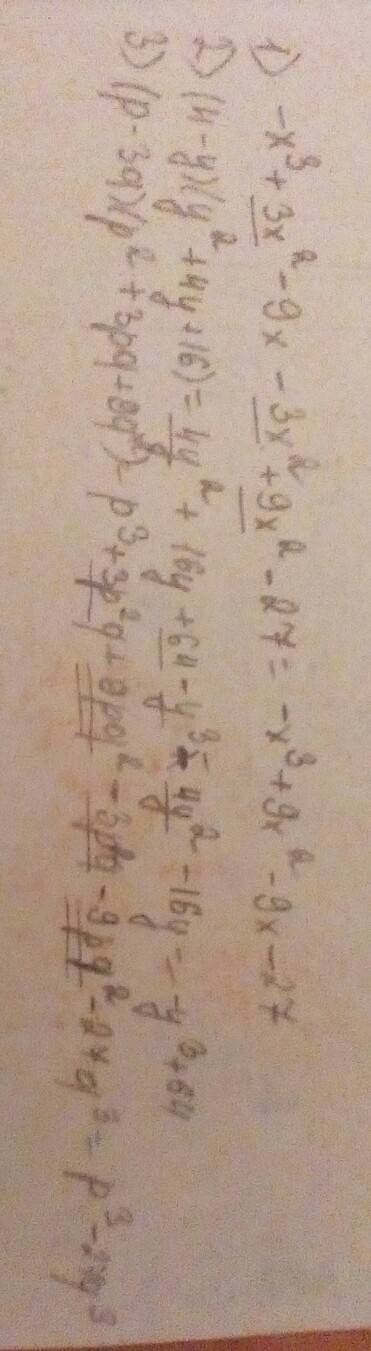 1) -x³ + 3x² - 9x - 3x² + 9x² - 27 = -x³ + 9x² - 9x - 27
2) (4-y)(y² + 4y + 16) = 4y² + 16y + 64 - y³ - 4y² - 16y = -y³ + 64
3) (p - 3q)(p² + 3pq + 9q²) - p³ + 3p²q + 9pq² - 3p²q - 9pq² - 27q³ = p³ - 27q³